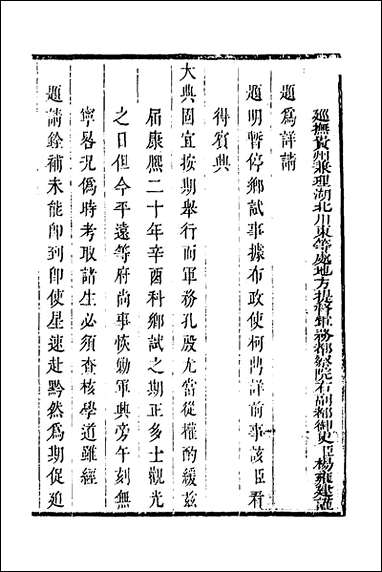 巡撫貴州兼理湖北川東等處地方提督軍務都察院右副都御史臣楊雍建謹
題為詳請
題明暫停鄉試事據布政使柯鼎詳前事該臣看
得賓典
大典固宜按期舉行而軍務孔殷尤當從權酌緩茲
屆康熙二十年辛酉科鄉試之期正多士觀光
之日但今平遠等府尚事恢勦軍興旁午刻無
寧晷況偽時考取諸生必須查核學道雖經
題請銓補未能即到即使星速赴黔然為期促迫